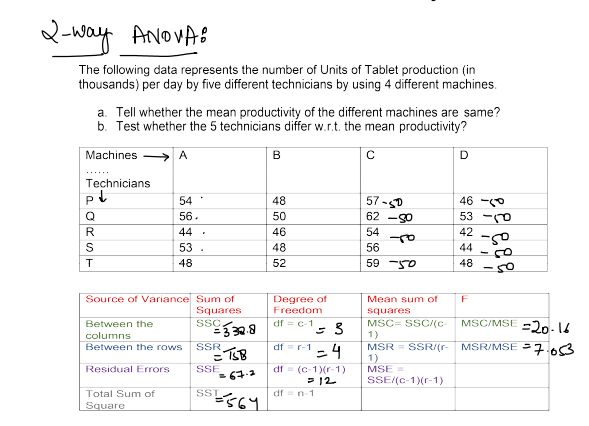 2-way ANOVA:
The following data represents the number of Units of Tablet production (in
thousands) per day by five different technicians by using 4 different machines.
a. Tell whether the mean productivity of the different machines are same?
b. Test whether the 5 technicians differ w.r.t. the mean productivity?
Machines → A B C D
......
Technicians
P ↓ 54 48 57 -50 46 -50
Q 56 50 62 -50 53 -50
R 44 46 54 -50 42 -50
S 53 48 56 44 -50
T 48 52 59 -50 48 -50
Source of Variance Sum of Squares Degree of Freedom Mean sum of squares F
Between the columns SSC =338.8 df = c-1 = 3 MSC= SSC/(c-1) MSC/MSE =20.16
Between the rows SSR =158 df = r-1 = 4 MSR = SSR/(r-1) MSR/MSE =7.053
Residual Errors SSE =67.2 df = (c-1)(r-1) =12 MSE = SSE/(c-1)(r-1)
Total Sum of Square SST =564 df = n-1